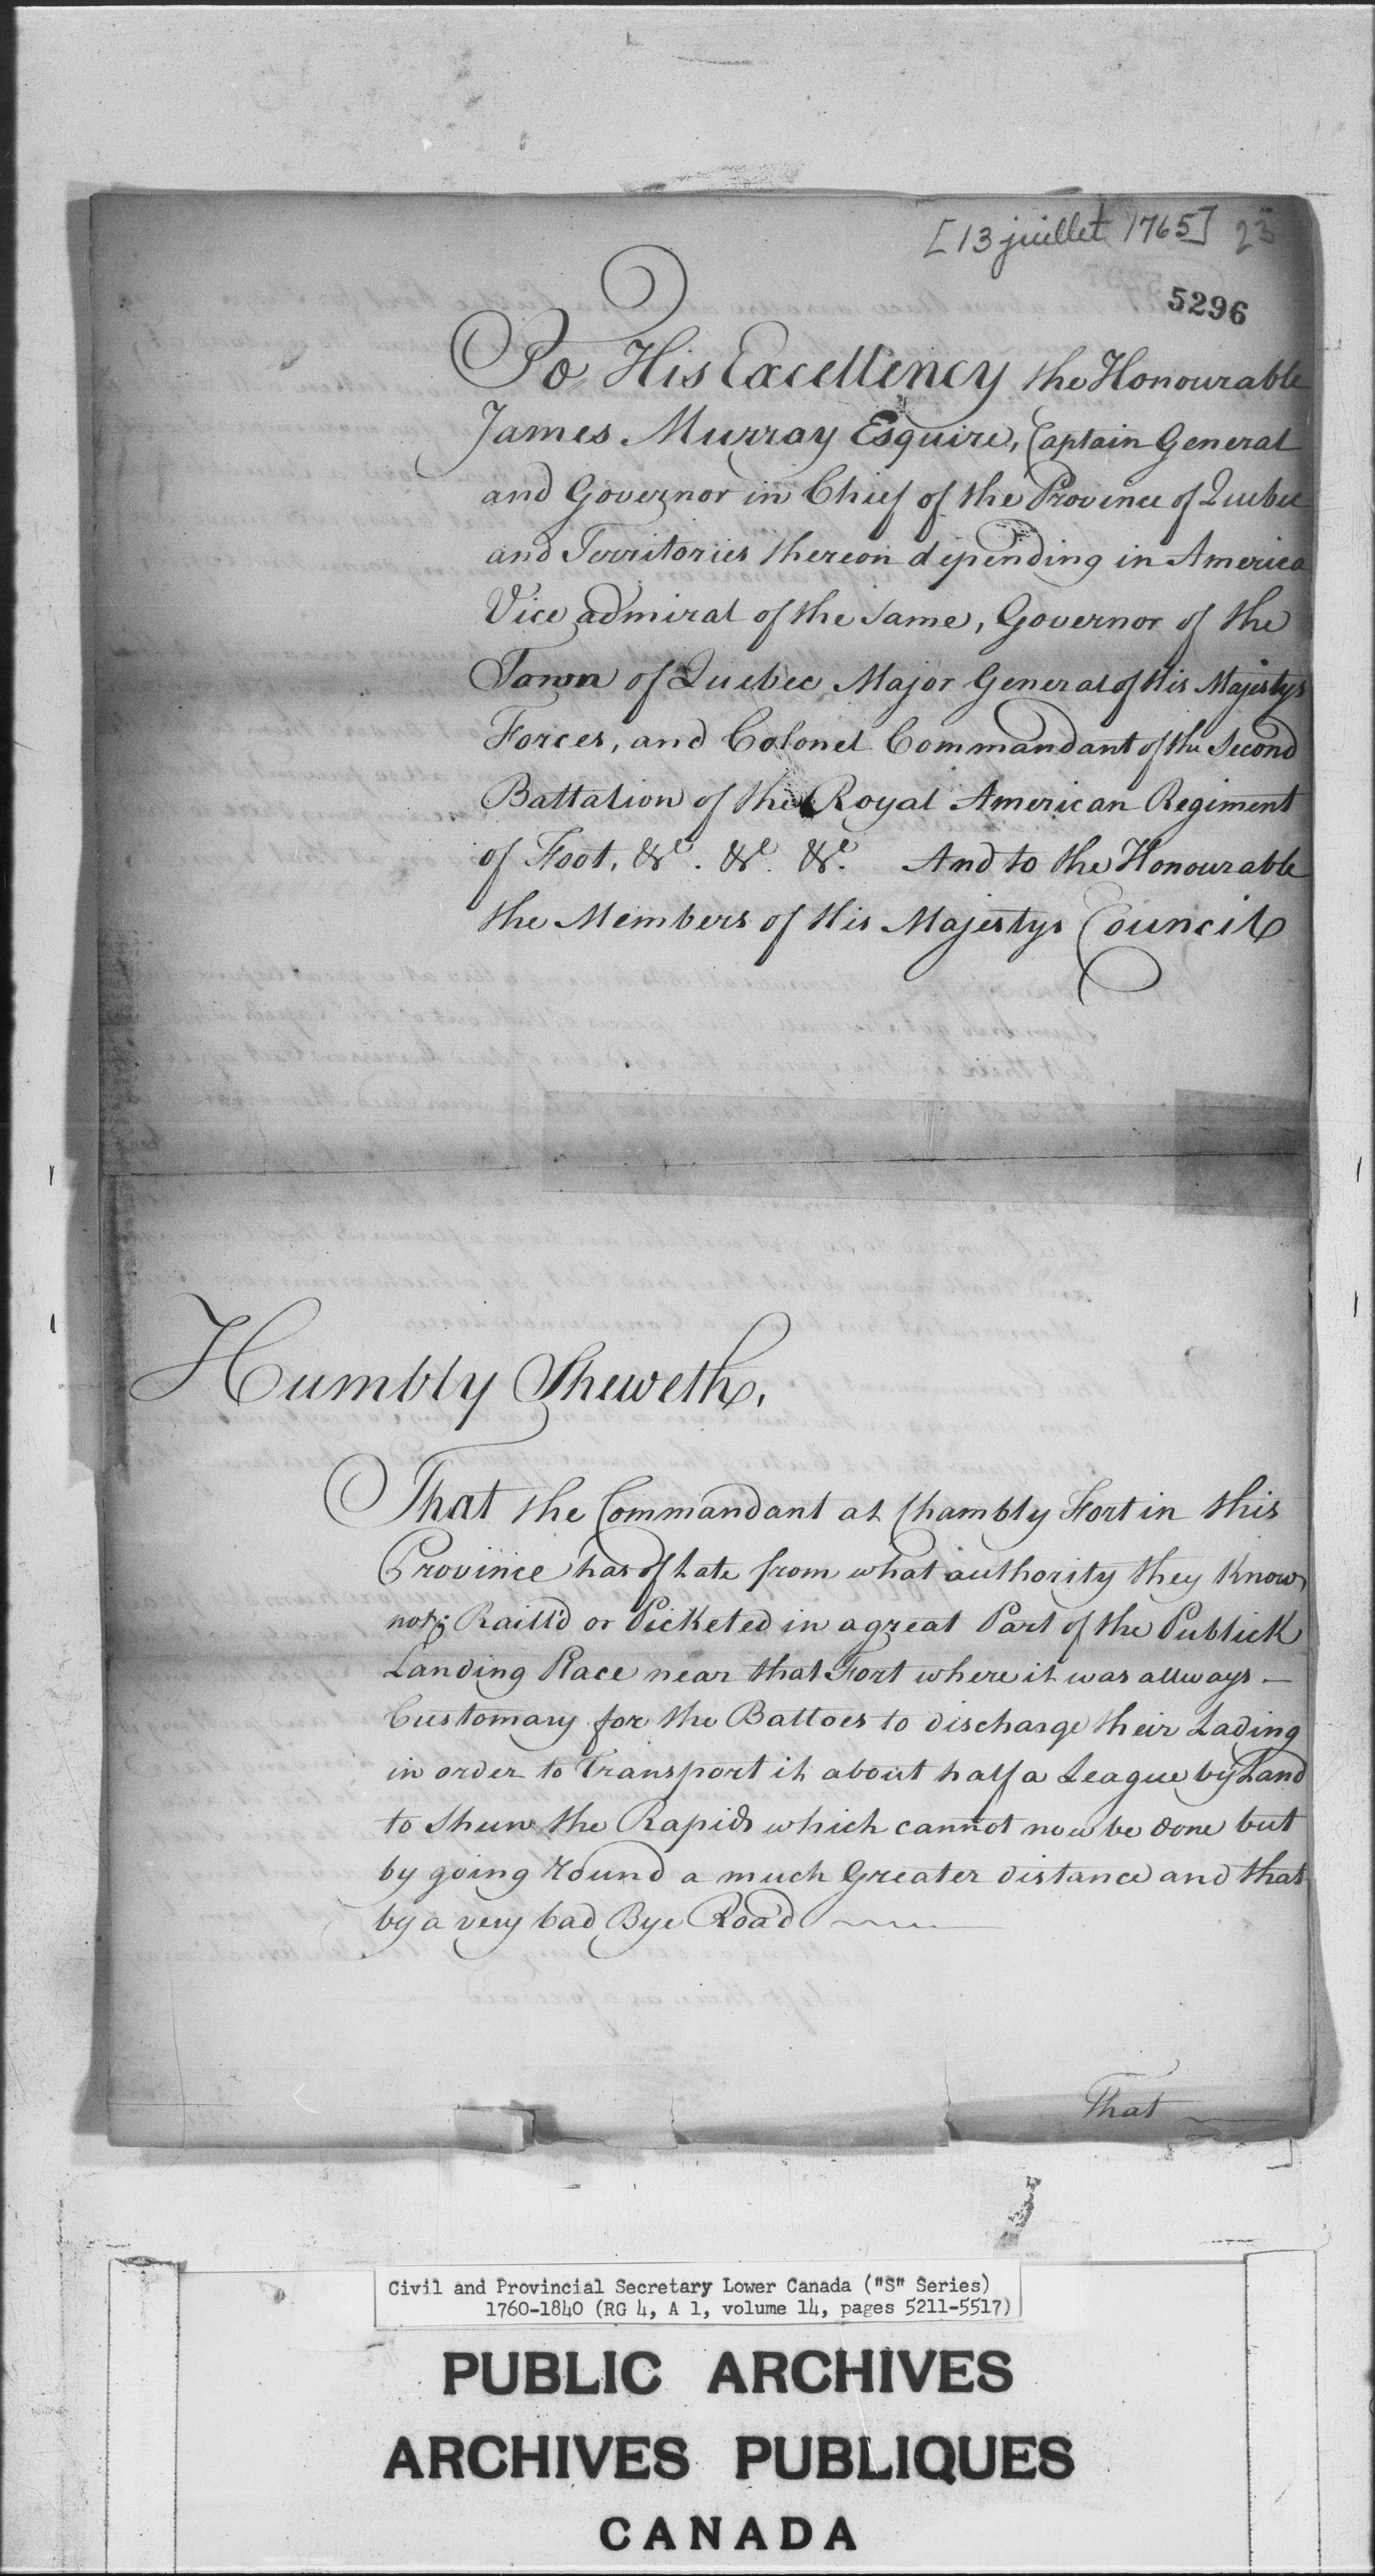 [13 juillet 1765] 23
5296
To His Excellency the Honourable
James Murray Esquire, Captain General
and Governor in Chief of the Province of Quebec
and Territories thereon depending in America
Vice admiral of the same, Governor of the
Town of Quebec Major General of His Majestys
Forces, and Colonel Commandant of the Second
Battalion of the Royal American Regiment
of Foot, &c. &c. &c. And to the Honourable
the Members of His Majestys Council
Humbly Sheweth,
That the Commandant at Chambly Fort in this
Province has of Late from what authority they Know
not; Raill'd or Picketed in a great Part of the Publick
Landing Place near that Fort where it was allways –
Customary for the Battoes to discharge their Lading
in order to Transport it about half a League by Land
to Shun the Rapids which cannot now be done but
by going round a much Greater distance and that
by a very bad Bye Road
That
Civil and Provincial Secretary Lower Canada ("S" Series)
1760-1840 (RG 4, A 1, volume 14, pages 5211-5517)
PUBLIC ARCHIVES
ARCHIVES PUBLIQUES
CANADA